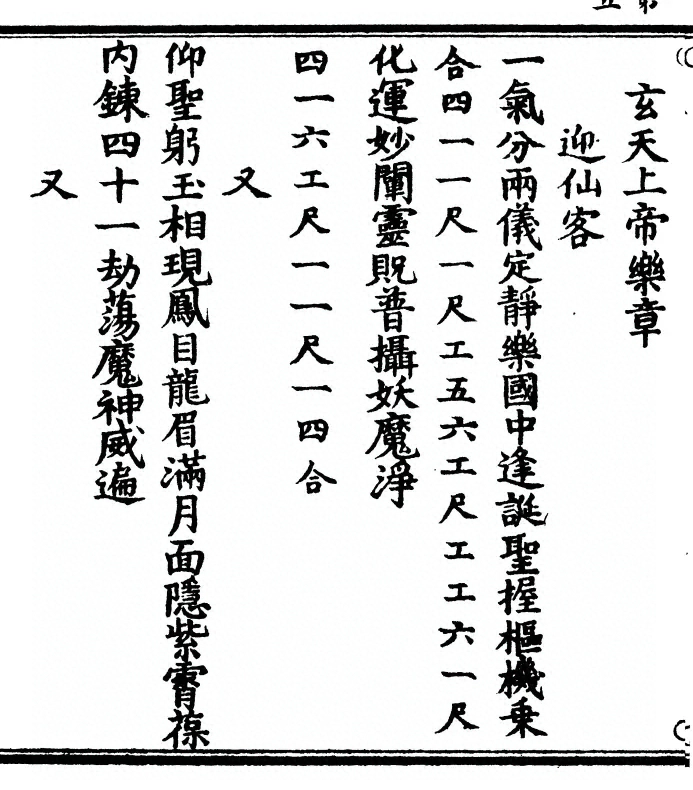 玄天上帝樂章
迎仙客
一氣分兩儀定靜樂國中逢誕聖握樞機乗
合四一一尺一尺工五六工尺工工六一尺
化運妙闡靈貺普攝妖魔淨
四一六工尺一一尺一四合
又
仰聖躬玉相現鳳目龍眉滿月面隱紫霄葆
内鍊四十一劫蕩魔神威遍
又